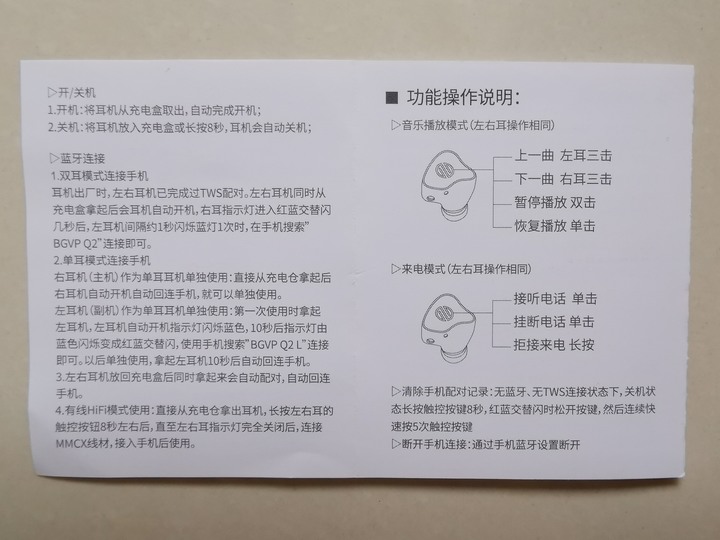 ▷开/关机
1.开机：将耳机从充电盒取出，自动完成开机；
2.关机：将耳机放入充电盒或长按8秒，耳机会自动关机；
▷蓝牙连接
1.双耳模式连接手机
耳机出厂时，左右耳机已完成过TWS配对。左右耳机同时从
充电盒拿起后会耳机自动开机，右耳指示灯进入红蓝交替闪
几秒后，左耳机间隔约1秒闪烁蓝灯1次时，在手机搜索”
BGVP Q2”连接即可。
2.单耳模式连接手机
右耳机（主机）作为单耳耳机单独使用：直接从充电仓拿起后
右耳机自动开机自动回连手机，就可以单独使用。
左耳机（副机）作为单耳耳机单独使用：第一次使用时拿起
左耳机，左耳机自动开机指示灯闪烁蓝色，10秒后指示灯由
蓝色闪烁变成红蓝交替闪，使用手机搜索”BGVP Q2 L”连接
即可。以后单独使用，拿起左耳机10秒后自动回连手机。
3.左右耳机放回充电盒后同时拿起来会自动配对，自动回连
手机。
4.有线HiFi模式使用：直接从充电仓拿出耳机，长按左右耳的
触控按钮8秒左右后，直至左右耳指示灯完全关闭后，连接
MMCX线材，接入手机后使用。
■ 功能操作说明：
▷音乐播放模式（左右耳操作相同）
上一曲 左耳三击
下一曲 右耳三击
暂停播放 双击
恢复播放 单击
▷来电模式（左右耳操作相同）
接听电话 单击
挂断电话 单击
拒接来电 长按
▷清除手机配对记录：无蓝牙、无TWS连接状态下，关机状
态长按触控按键8秒，红蓝交替闪时松开按键，然后连续快
速按5次触控按键
▷断开手机连接：通过手机蓝牙设置断开